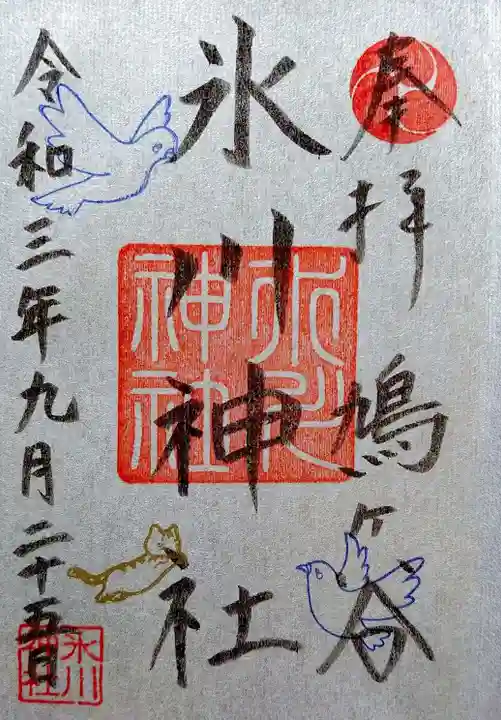 奉拝 鳩ヶ谷
氷川神社
令和三年九月二十五日
氷川
神社
氷川
神社